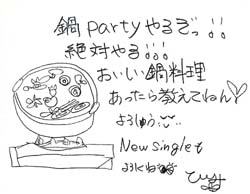 鍋partyやるぞっ!!
絶対やる!!!
おいしい鍋料理
あったら教えてねん♡
よろしゅう
New singleも
よろしくね